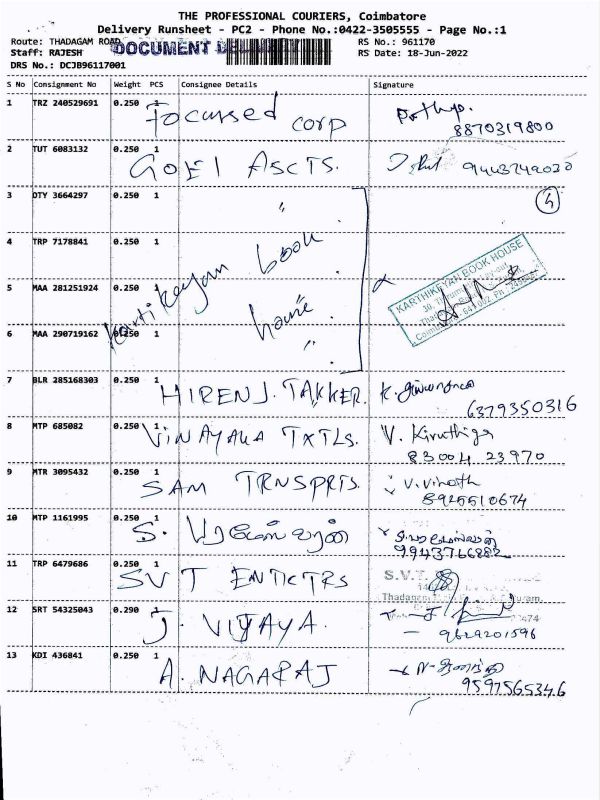 THE PROFESSIONAL COURIERS, Coimbatore
Delivery Runsheet - PC2 - Phone No.:0422-3505555 - Page No.:1
Route: THADAGAM ROAD DOCUMENT RS No.: 961170
Staff: RAJESH RS Date: 18-Jun-2022
DRS No.: DCJB96117001
S No Consignment No Weight PCS Consignee Details Signature
1 TRZ 240529691 0.250 1 Focussed corp
8870319800
2 TUT 6083132 0.250 1 GOEl ASCTS. 9443749030
3 DTY 3664297 0.250 1 " 4
4 TRP 7178841 0.250 1
Kartikeyan book house
KARTHIKEYAN BOOK HOUSE
5 MAA 281251924 0.250 1
6 MAA 290719162 0.250 1 "
7 BLR 285168303 0.250 1 HIREN J. TAKKER. K.
6379350316
8 MTP 685082 0.250 1 VINAYAKA TXTLS. V. Kiruthiga
83004 23970
9 MTR 3095432 0.250 1 SAM TRNSPRTS. V. Vinoth
8925510674
10 MTP 1161995 0.250 1 S.
9943766882
11 TRP 6479686 0.250 1 SVT ENTCTRS S.V.T.
12 SRT 54325043 0.290 1 J VIJAYA.
9629201596
13 KDI 436841 0.250 1 A. NAGARAJ
9597565346